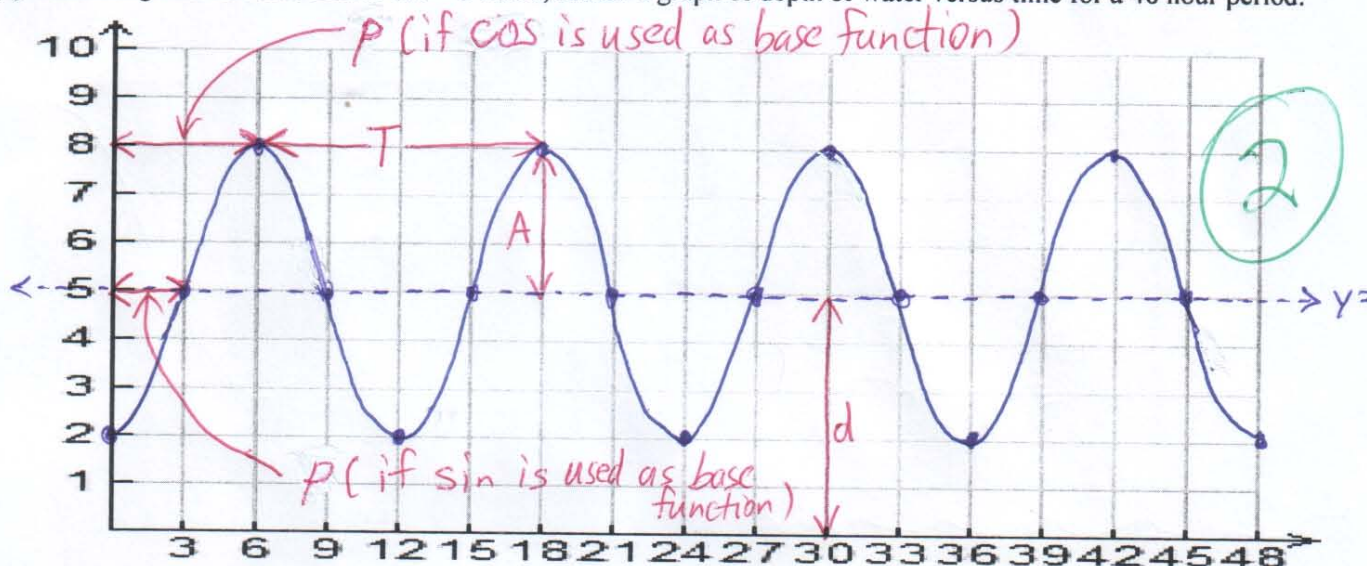 depth of water versus time for a 48 hour period.
p (if cos is used as base function)
10
9
8
7
6
5
4
3
2
1
T
A
2
y=
d
p (if sin is used as base
function)
3 6 9 12 15 18 21 24 27 30 33 36 39 42 45 48